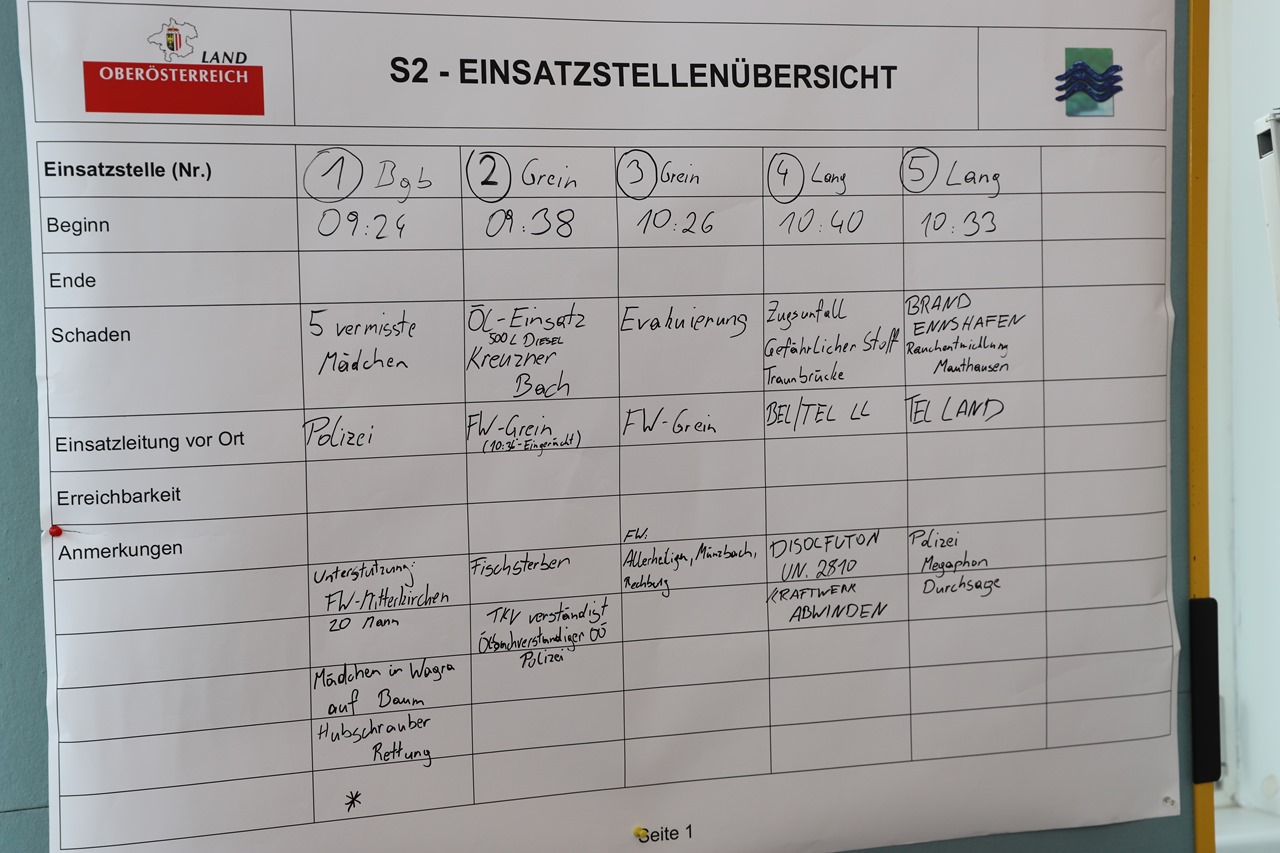 LAND
OBERÖSTERREICH
S2 - EINSATZSTELLENÜBERSICHT
Einsatzstelle (Nr.)
1 Bgb
2 Grein
3 Grein
4 Lang
5 Lang
Beginn
09:24
09:38
10:26
10:40
10:33
Ende
Schaden
5 vermisste
Mädchen
ÖL-Einsatz
500 L DIESEL
Kreuzner
Bach
Evakuierung
Zugsunfall
Gefährlicher Stoff
Traunbrücke
BRAND
ENNSHAFEN
Rauchentwicklung
Mauthausen
Einsatzleitung vor Ort
Polizei
FW-Grein
(10:36-Eingerückt)
FW-Grein
BEL/TEL LL
TEL LAND
Erreichbarkeit
Anmerkungen
Unterstützung:
FW-Mitterkirchen
20 Mann
Mädchen in Wagra
auf Baum
Hubschrauber
Rettung
*
Fischsterben
TKV verständigt
Ölsachverständiger OÖ
Polizei
FW:
Allerheiligen, Münzbach,
Rechberg
DISOLFUTON
UN. 2810
KRAFTWERK
ABWINDEN
Polizei
Megaphon
Durchsage
Seite 1